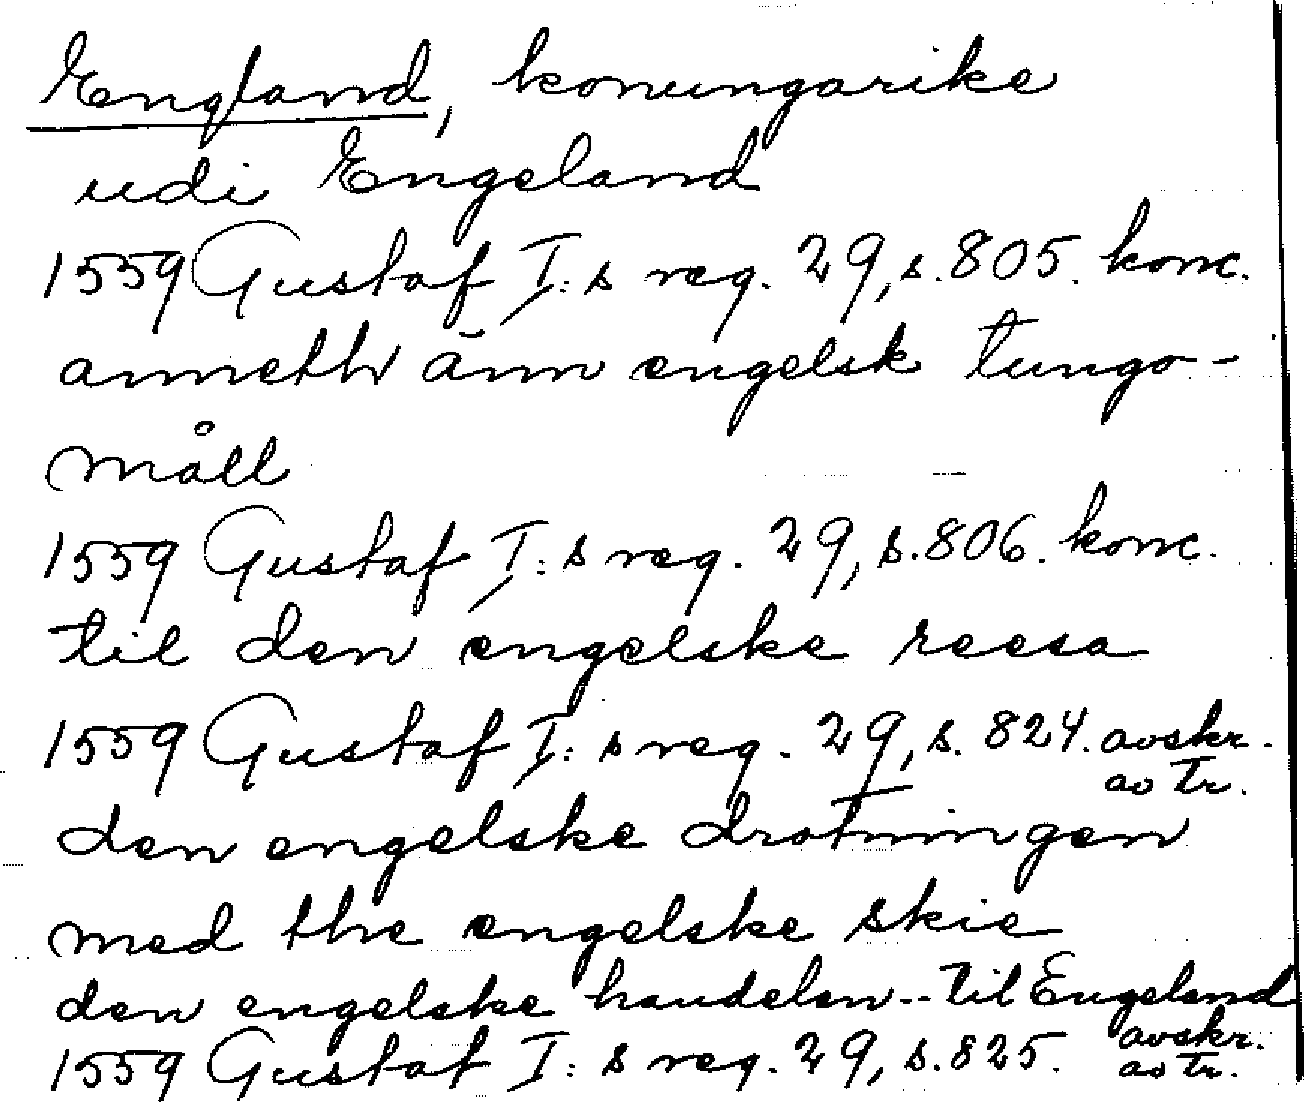 England, konungarike
udi Engeland
1559 Gustaf I:s reg. 29, s. 805. konc.
anneth än engelsk tungo-
måll
1559 Gustaf I:s reg. 29, s. 806. konc.
til den engelske reesa
1559 Gustaf I:s reg. 29, s. 824. avskr.
av tr.
den engelske drotningen
med the engelske skie
den engelske handelen -- til Engeland
1559 Gustaf I:s reg. 29, s. 825. avskr.
av tr.